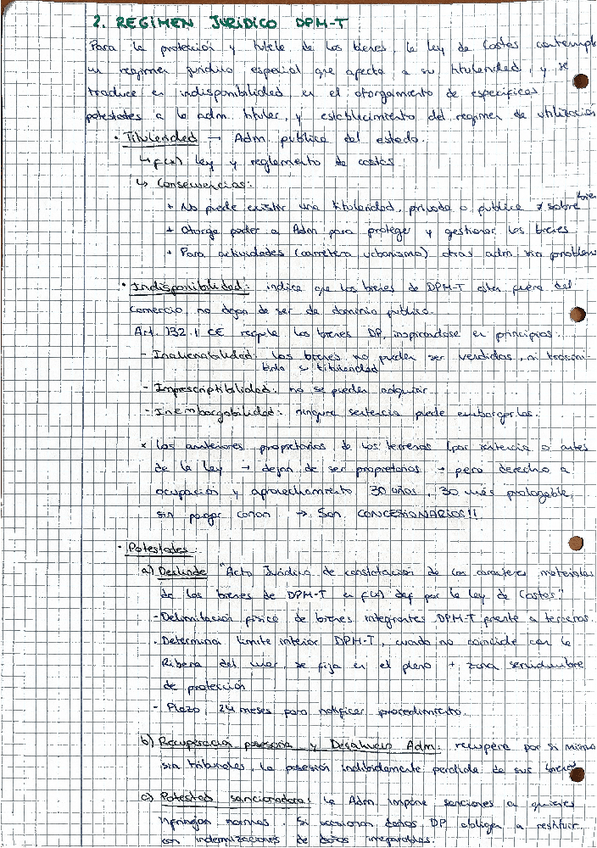 2. REGIMEN JURIDICO DPM-T
Para la protección y tutela de los bienes, la ley de Costas contempl
un regimen juridico especial que afecta a su titularidad, y se
traduce en indisponibilidad en el otorgamiento de especificas
potestades a la adm. titular, y establecimiento del regimen de utilización
· Titularidad → Adm. publica del estado.
↳ f(x) ley y reglamento de costas
↳ Consecuencias:
+ No puede existir una titularidad, privada o publica sobre bie
+ Otorga poder a Adm para proteger y gestionar los bienes
+ Para actividades (carretera, urbanismo) otras adm. sin problem
· Indisponibilidad: indica que los bienes de DPM-T estan fuera del
comercio, no dejan de ser de dominio publico.
Art. 132.1 CE regula los bienes DP, inspirandose en principios:
- Inalienabilidad: los bienes no pueden ser vendidos, ni transmi-
tida su titularidad
- Imprescriptibilidad: no se pueden adquirir.
- Inembargabilidad: ninguna sentencia puede embargarlos.
* Los anteriores propietarios de los terrenos (por sentencia o antes
de la Ley → dejan de ser propietarios → pero derecho a
ocupación y aprovechamiento 30 años, 30 más prologable,
sin pagar canon → Son CONCESIONARIOS!!
· Potestades
a) Deslinde "Acto Jurídico de constatación de los caracteres materiales
de los bienes de DPM-T en f(x) def por la ley de Costas"
- Delimitación física de bienes integrantes DPM-T frente a terceros.
- Determina limite interior DPM-T, cuando no coincide con la
Ribera del mar, se fija en el plano + zona servidumbre
de protección
- Plazo, 24 meses para notificar procedimiento.
b) Recuperación posesoria y Desahucio Adm: recupera por si misma
sin tribunales, la posesión indebidamente perdida de sus bienes
c) Potestad sancionadora: la Adm. impone sanciones a quienes
infringan normas. Si ocasionan daños DP, obliga a restituir
con indemnizaciones de daños irreparables.